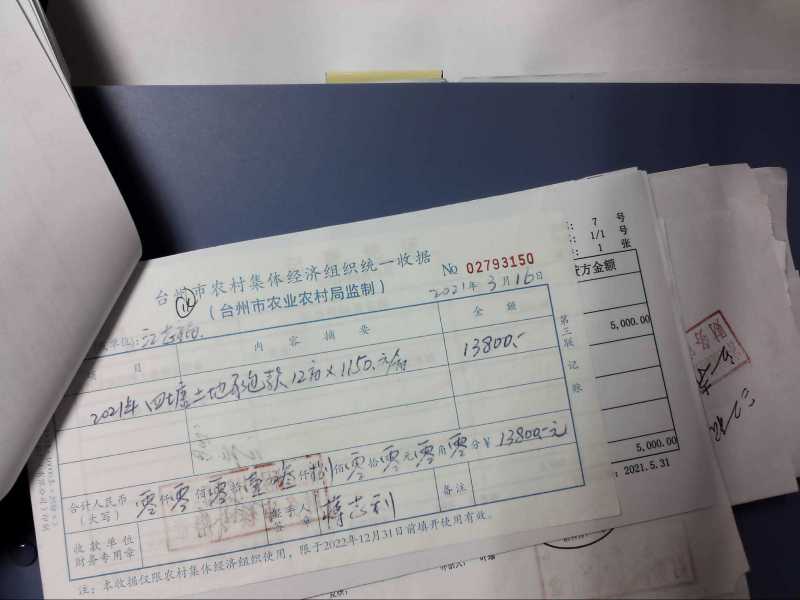 台州市农村集体经济组织统一收据
(台州市农业农村局监制)
No 02793150
2021年3月16日
内 容 摘 要
金 额
2021年四塘土地承包款12亩×1150.元/亩
13800.-
第三联 记账
合计人民币
(大写)
零仟零佰零拾壹万叁仟捌佰零拾零元零角零分¥13800.-元
收款单位
财务专用章
经手人
签章
蒋志利
备注
注:本收据仅限农村集体经济组织使用,限于2022年12月31日前填开使用有效。
7 号
1/1 号
1 张
贷方金额
5,000.00
5,000.00
:2021.5.31